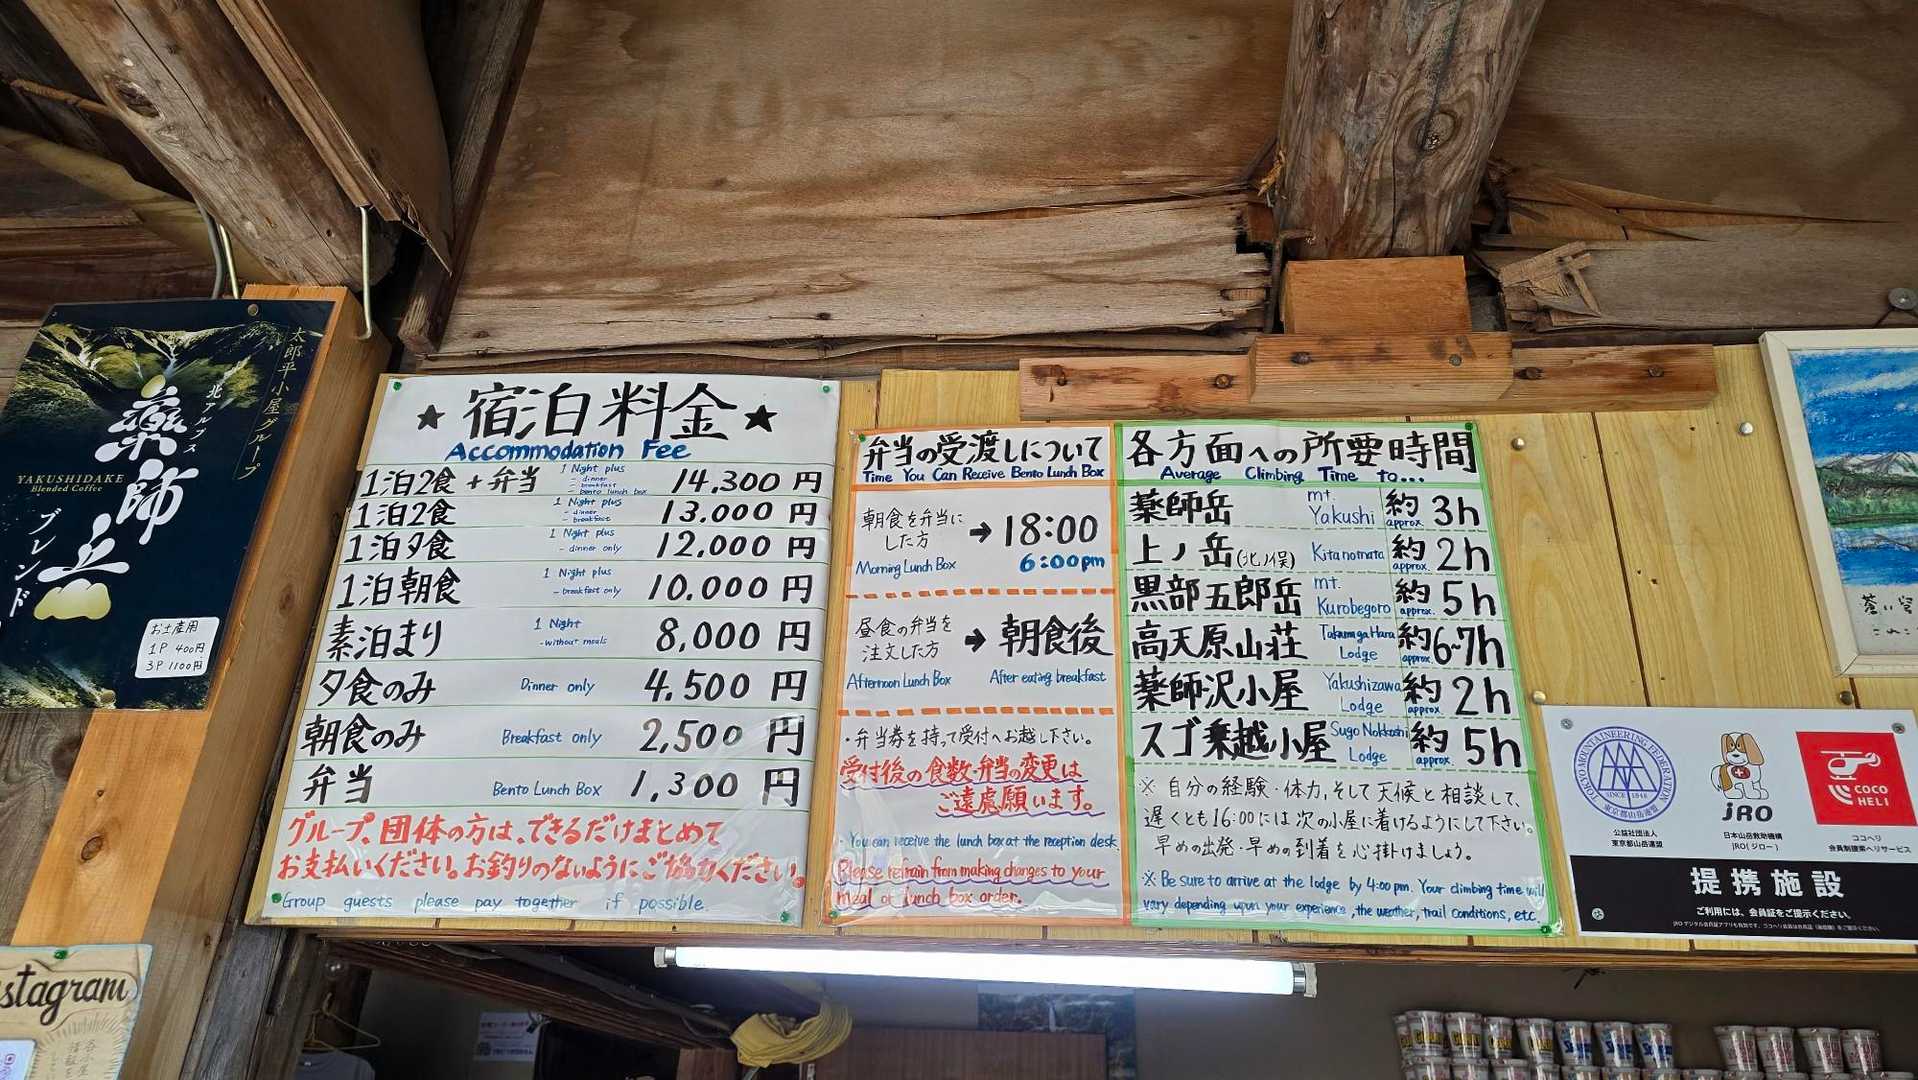 太郎平小屋グループ
北アルプス
薬師岳
YAKUSHIDAKE
Blended Coffee
ブレンド
お土産用
1P 400円
3P 1100円
stagram
★宿泊料金★
Accommodation Fee
1泊2食+弁当 1 Night plus - dinner - breakfast - bento lunch box 14,300円
1泊2食 1 Night plus - dinner - breakfast 13,000円
1泊夕食 1 Night plus - dinner only 12,000円
1泊朝食 1 Night plus - breakfast only 10,000円
素泊まり 1 Night - without meals 8,000円
夕食のみ Dinner only 4,500円
朝食のみ Breakfast only 2,500円
弁当 Bento Lunch Box 1,300円
グループ、団体の方は、できるだけまとめて
お支払いください。お釣りのないようにご協力ください。
Group guests please pay together if possible.
弁当の受渡しについて
Time You Can Receive Bento Lunch Box
朝食を弁当にした方 → 18:00
Morning Lunch Box 6:00pm
昼食の弁当を注文した方 → 朝食後
Afternoon Lunch Box After eating breakfast
・弁当券を持って受付へお越し下さい。
受付後の食数・弁当の変更は
ご遠慮願います。
・You can receive the lunch box at the reception desk.
Please refrain from making changes to your
meal or lunch box order.
各方面への所要時間
Average Climbing Time to...
薬師岳 mt. Yakushi 約 approx. 3h
上ノ岳(北ノ俣) Kitanomata 約 approx. 2h
黒部五郎岳 mt. Kurobegoro 約 approx. 5h
高天原山荘 Takamaga Hara Lodge 約 approx. 6~7h
薬師沢小屋 Yakushizawa Lodge 約 approx. 2h
スゴ乗越小屋 Sugo Nokkoshi Lodge 約 approx. 5h
※ 自分の経験・体力、そして天候と相談して、
遅くとも16:00には次の小屋に着けるようにして下さい。
早めの出発・早めの到着を心掛けましょう。
※ Be sure to arrive at the lodge by 4:00 pm. Your climbing time will
vary depending upon your experience, the weather, trail conditions, etc.
TOKYO MOUNTAINEERING FEDERATION
SINCE 1948
東京都山岳連盟
公益社団法人
東京都山岳連盟
jRO
日本山岳救助機構
jRO(ジロー)
COCO
HELI
ココヘリ
会員制捜索ヘリサービス
提携施設
ご利用には、会員証をご提示ください。
蒼い空